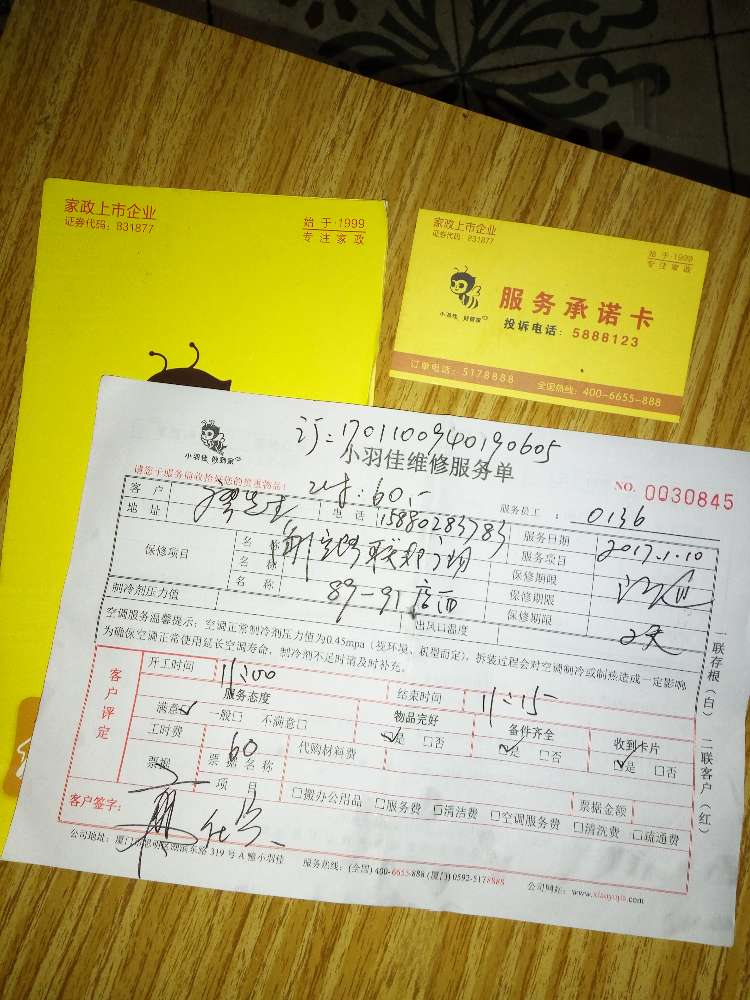 家政上市企业
证券代码：831877
始于·1999
专注家政
家政上市企业
证券代码：831877
始于·1999
专注家政
小羽佳
服务承诺卡
投诉电话：5888123
订单电话：5178888 全国热线：400-6655-888
1701100940190605
小羽佳
小羽佳维修服务单
NO. 0030845
请您于服务前收拾好您的贵重物品！
60.-
服务员工：0136
客户
地址
电话 15880283783
服务日期 2017.1.10
保修项目
名称
名称
名称
89-91店面
服务项目
保修期限
保修期限
保修期限
制冷剂压力值
出风口温度
空调服务温馨提示：空调正常制冷剂压力值为0.45mpa（视环境、机型而定），拆装过程会对空调制冷或制热造成一定影响
为确保空调正常使用延长空调寿命，制冷剂不足时请及时补充。
一联存根（白） 二联客户（红）
客户评定
开工时间 11:00
结束时间 11:15
服务态度
物品完好
备件齐全
收到卡片
满意☑ 一般□ 不满意□
☑是 □否
☑是 □否
☑是 □否
工时费 60
代购材料费
票据
票据名称
项目
□搬办公用品 □服务费 □清洁费 □空调服务费 □清洗费 □疏通费
票据金额
客户签字：
319号A幢小羽佳
服务热线：(全国)400-6655-888 (厦门)0592-5178888
公司网址：www.xiaoyujia.com